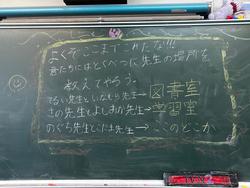 よくぞここまでこれたな!!!
君たちにはとくべつに先生の場所を
教えてやろう。
てるい先生といなもり先生→図書室
きの先生とよしおか先生→学習室
のぐち先生とこにし先生→ここのどこか